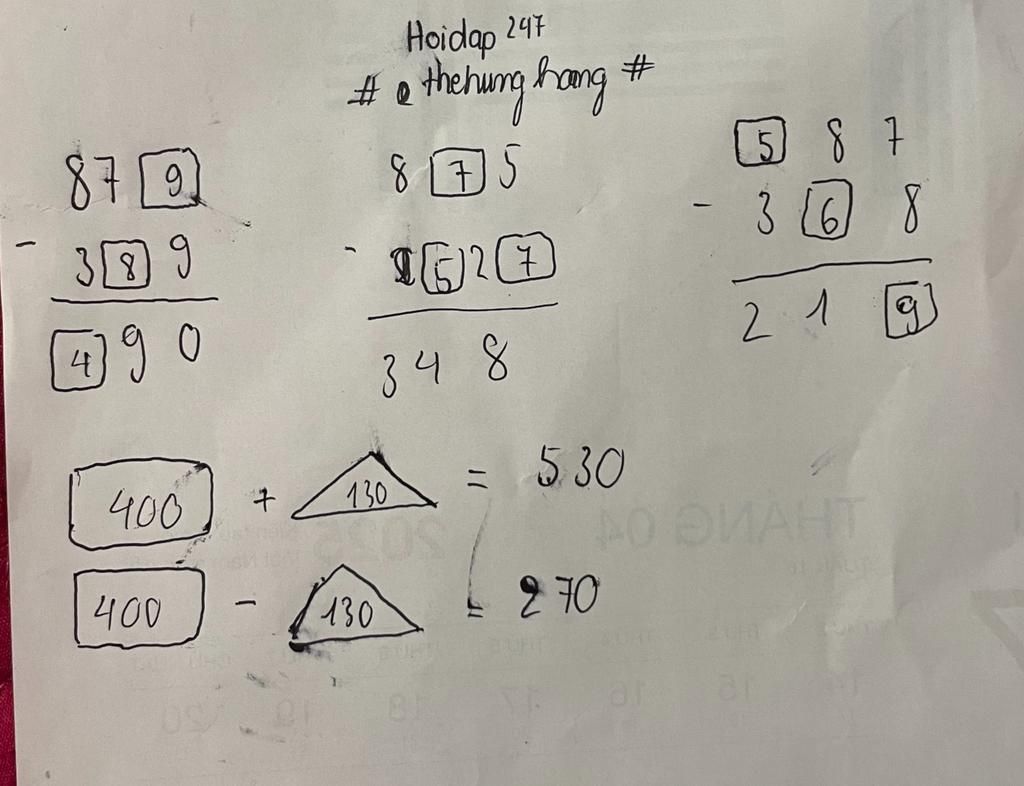 Hoidap 247
# @ thehunghang #
87 9
- 3 8 9
4 9 0
8 7 5
- 5 2 7
3 4 8
5 8 7
- 3 6 8
2 1 9
400 + 130 = 530
400 - 130 = 270
THÁNG 04 2025
14 15 16 17 18 19 20